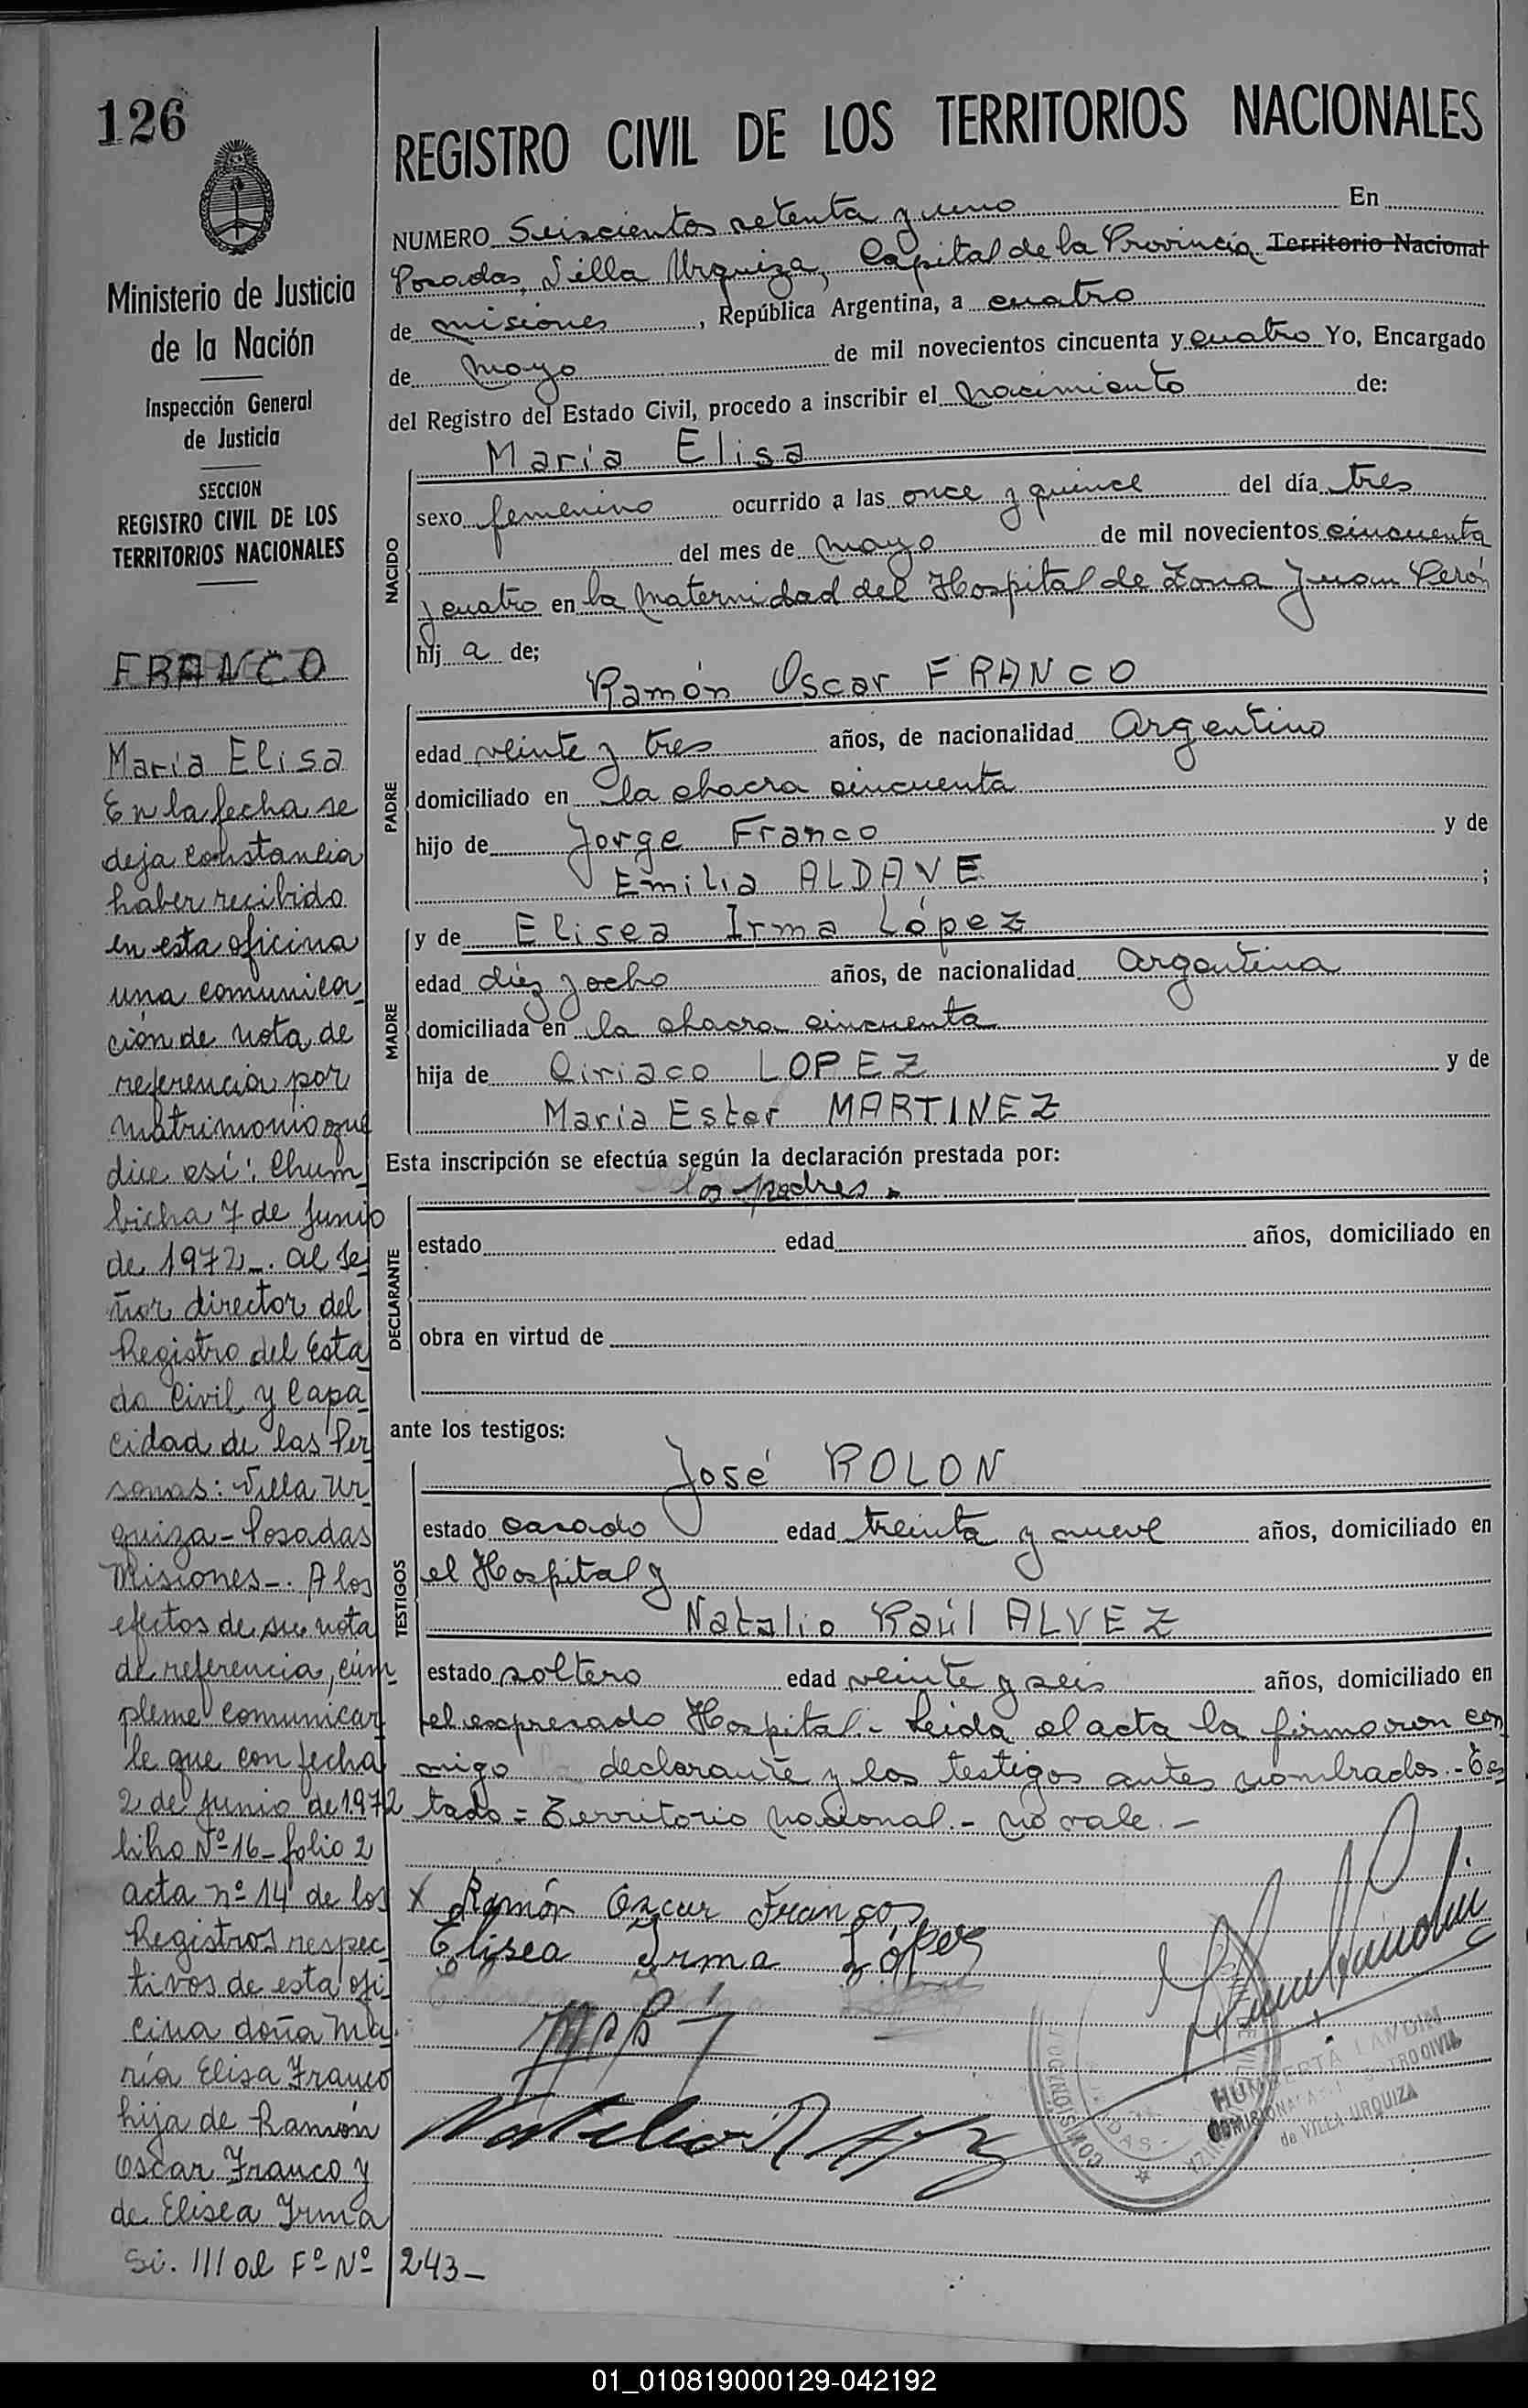 126
Ministerio de Justicia
de la Nación
Inspección General
de Justicia
SECCION
REGISTRO CIVIL DE LOS
TERRITORIOS NACIONALES
FRANCO
María Elisa
En la fecha se
deja constancia
haber recibido
en esta oficina
una comunica
ción de nota de
referencia por
matrimonio que
dice así: Chum
bicha 7 de Junio
de 1972_. Al Se
ñor director del
Registro del Esta
do Civil y Capa
cidad de las Per
sonas: Villa Ur
quiza - Posadas
Misiones -. A los
efectos de su nota
de referencia, cúm
pleme comunicar
le que con fecha
2 de Junio de 1972
libro Nº 16 - folio 2
acta nº 14 de los
Registros respec
tivos de esta ofi
cina doña Ma
ría Elisa Franco
hija de Ramón
Oscar Franco y
de Elisea Irma
Si. III al Fº Nº 243-
REGISTRO CIVIL DE LOS TERRITORIOS NACIONALES
NUMERO Seiscientos setenta y uno En
Posadas, Villa Urquiza, Capital de la Provincia Territorio Nacional
de misiones, República Argentina, a cuatro
de mayo de mil novecientos cincuenta y cuatro Yo, Encargado
del Registro del Estado Civil, procedo a inscribir el nacimiento de:
María Elisa
NACIDO
sexo femenino ocurrido a las once y quince del día tres
del mes de mayo de mil novecientos cincuenta
y cuatro en la maternidad del Hospital de Zona Juan Perón
hij a de;
Ramón Oscar FRANCO
PADRE
edad veinte y tres años, de nacionalidad Argentino
domiciliado en la chacra cincuenta
hijo de Jorge Franco y de
Emilia ALDAVE ;
y de Elisea Irma López
MADRE
edad diez y ocho años, de nacionalidad argentina
domiciliada en la chacra cincuenta
hija de Ciriaco LOPEZ y de
María Ester MARTINEZ
Esta inscripción se efectúa según la declaración prestada por:
los padres.
DECLARANTE
estado edad años, domiciliado en
obra en virtud de
ante los testigos:
José ROLON
TESTIGOS
estado casado edad treinta y nueve años, domiciliado en
el Hospital y
Natalio Raúl ALVEZ
estado soltero edad veinte y seis años, domiciliado en
el expresado Hospital.- Leida el acta la firmaron con
migo declarante y los testigos antes nombrados.- Tes
tado = Territorio nacional.- no vale.-
x Ramón Oscar Franco
Elisea Irma López
HUMBERTA LANDIN
de VILLA URQUIZA
01_010819000129-042192